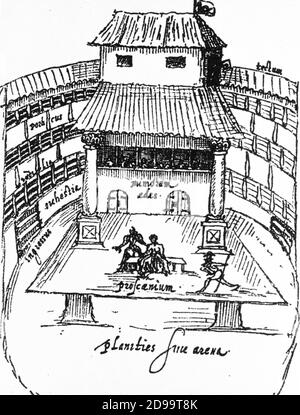 tectum
porticus
sedilia
orchestra
mimorum
ædes
ingressus
proscænium
planities siue arena
alamy - 2D99T8K